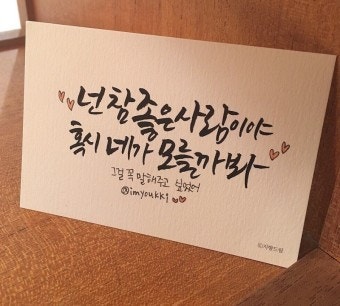 넌 참 좋은 사람이야
혹시 네가 모를까봐
그걸 꼭 말해주고 싶었어
@imyoukkj